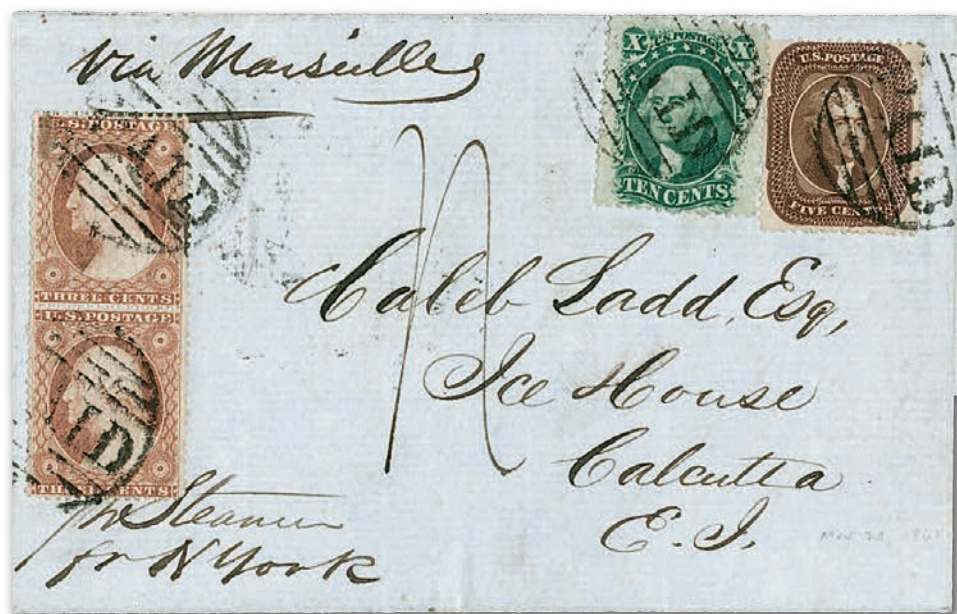 via Marseilles
X U.S. POSTAGE X
TEN CENTS
U.S. POSTAGE
FIVE CENTS
PAID
PAID
U.S. POSTAGE
THREE CENTS
U.S. POSTAGE
THREE CENTS
PAID
PAID
Caleb Ladd, Esq,
Ice House
Calcutta
E. I.
pr Steamer
fr N York